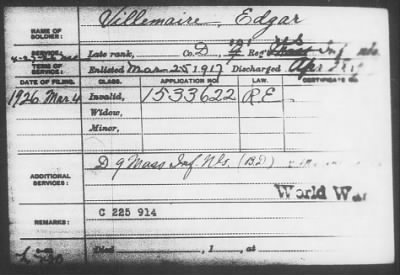 NAME OF SOLDIER: Villemaire, Edgar
SERVICE: Late rank, Co. D, Reg't Inf
TERM OF SERVICE: Enlisted Mar. 25 1917 Discharged Apr
DATE OF FILING. CLASS. APPLICATION NO. LAW. CERTIFICATE NO.
1926 Mar 4 Invalid, 1533622 R.E.
Widow,
Minor,
ADDITIONAL SERVICES: D 9 Mass Inf. N.G.
World War
REMARKS: C 225 914
Died , 1 , at